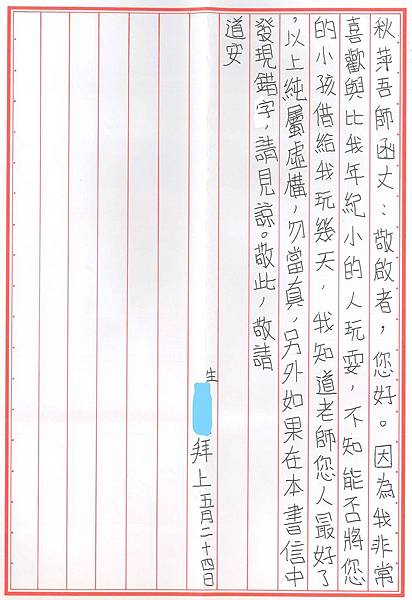 秋萍吾師函丈：敬啟者，您好。因為我非常
喜歡與比我年紀小的人玩耍，不知能否將您
的小孩借給我玩幾天，我知道老師您人最好了
，以上純屬虛構，勿當真，另外如果在本書信中
發現錯字，請見諒。敬此，敬請
道安
生 拜上 五月二十四日